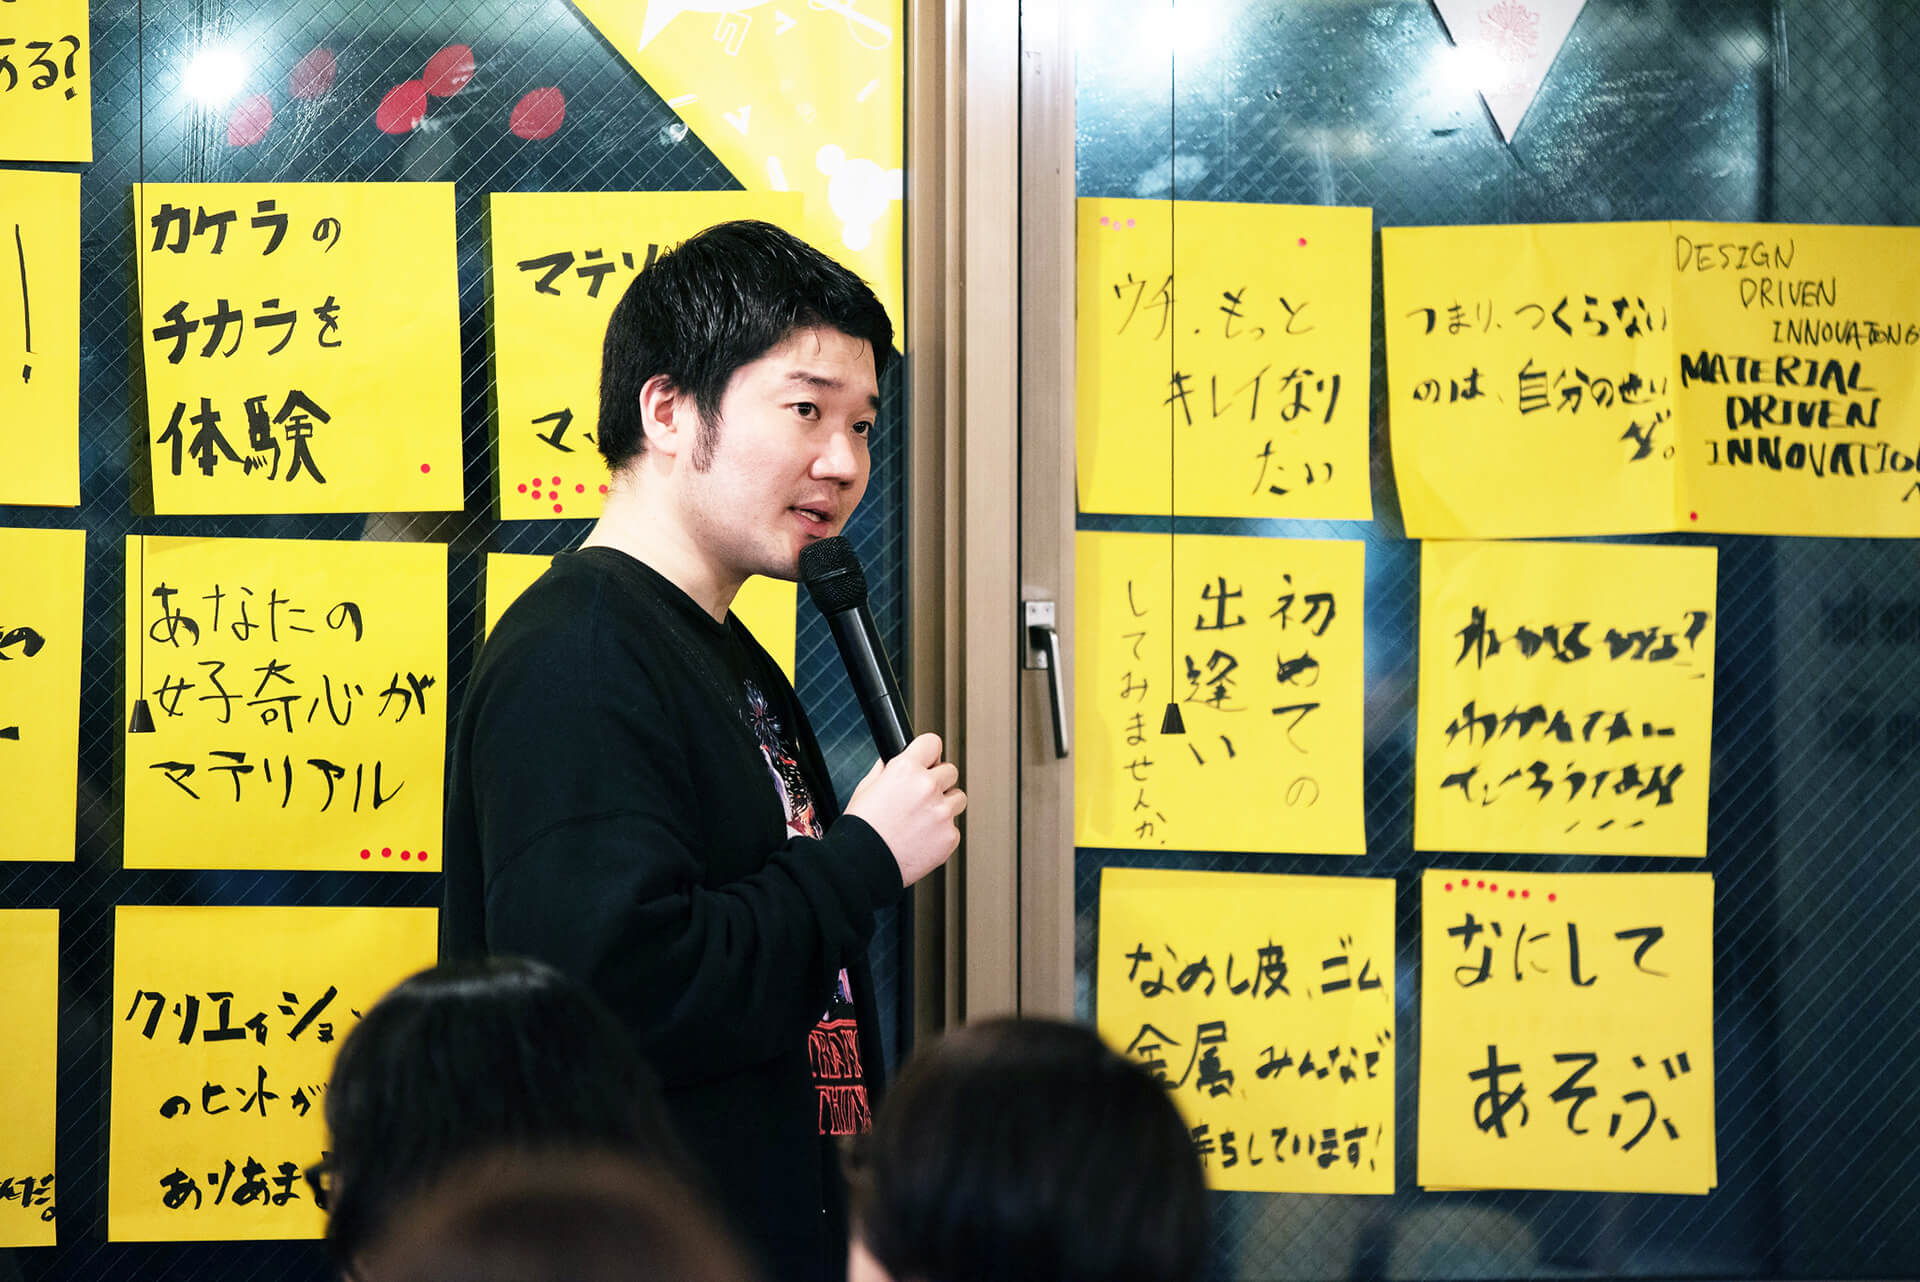 ある?
!
カケラの
チカラを
体験
マテリ
あなたの
好奇心が
マテリアル
クリエイショ
のヒントが
ありあま
ウチ、もっと
キレイなり
たい
つまり、つくらない
のは、自分のせい
だ。
DESIGN
DRIVEN
INNOVATION
MATERIAL
DRIVEN
INNOVATION
初めての
出逢い
してみませんか。
わかるかなぁ?
わかんねぇ
だろうなぁ
なめし皮、ゴム、
金属、みんなで
待ちしています!
なにして
あそぶ